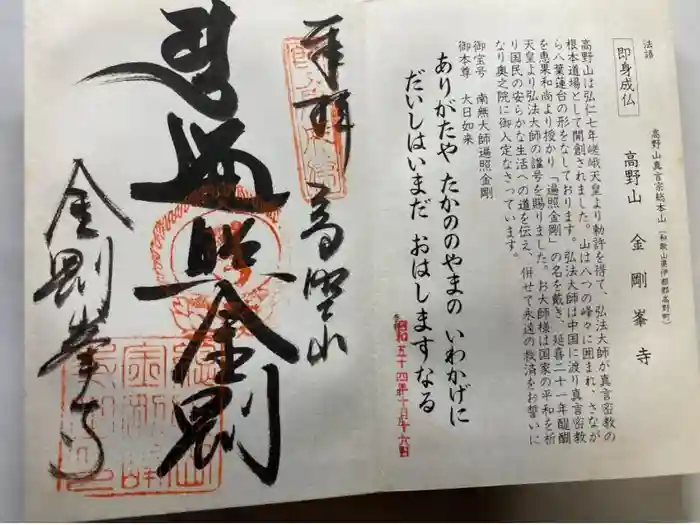 法語
即身成仏
高野山真言宗総本山(和歌山県伊都郡高野町)
高野山 金剛峯寺
高野山は弘仁七年嵯峨天皇より勅許を得て、弘法大師が真言密教の
根本道場として開創されました。山は八つの峰々に囲まれ、さなが
ら八葉蓮台の形をなしております。弘法大師は中国に渡り真言密教
を恵果和尚より授かり「遍照金剛」の名を戴き、延喜二十一年醍醐
天皇より弘法大師の諡号を賜りました。お大師様は国家の平和を祈
り国民の安らかな生活への道を伝え、併せて永遠の救済をお誓いに
なり奥之院に御入定なさっています。
御宝号 南無大師遍照金剛
御本尊 大日如来
ありがたや たかののやまの いわかげに
だいしはいまだ おはしますなる
昭和五十四年十月十六日
奉拝 高野山
遍照金剛
金剛峯寺